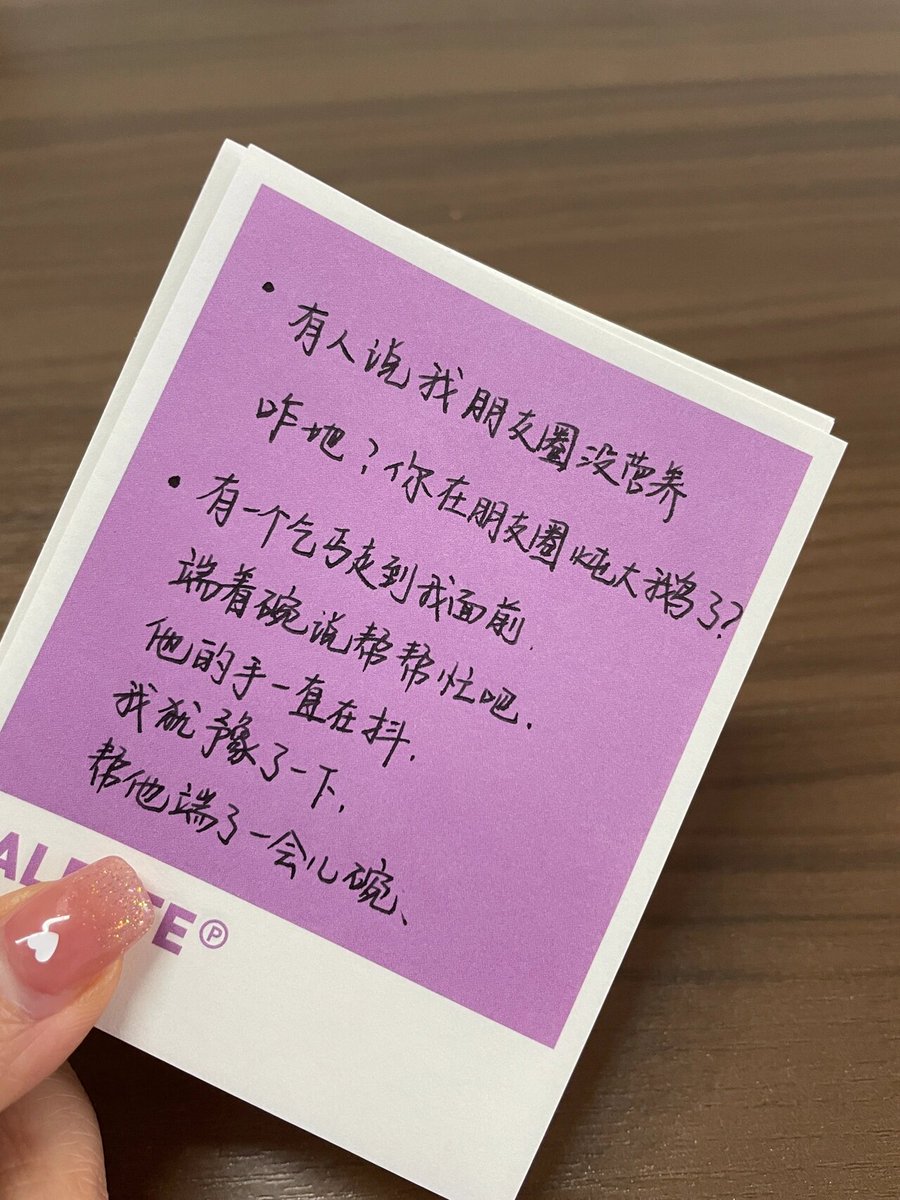 • 有人说我朋友圈没营养
咋地?你在朋友圈炖大鹅了?
• 有一个乞丐走到我面前.
端着碗说帮帮忙吧.
他的手一直在抖.
我犹豫了一下,
帮他端了一会儿碗、